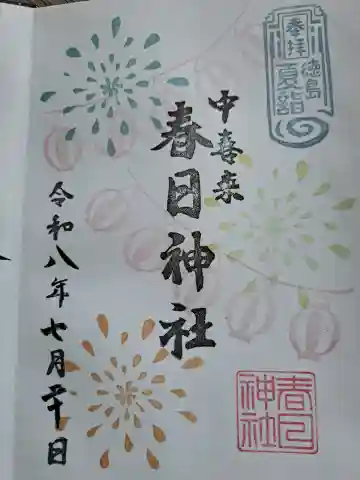 奉拝
徳島
夏詣
中喜来
春日神社
令和八年七月二十日
春日
神社